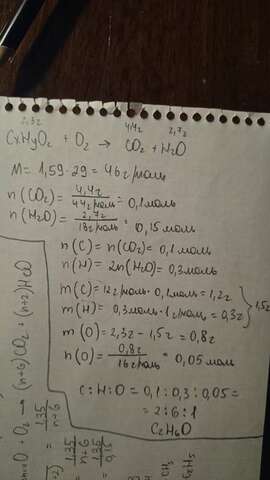 2,3г 4,4г 2,7г
CxHyOz + O2 → CO2 + H2O
M = 1,59 · 29 = 46 г/моль
n(CO2) = 4,4г / 44 г/моль = 0,1 моль
n(H2O) = 2,7г / 18 г/моль = 0,15 моль
n(C) = n(CO2) = 0,1 моль
n(H) = 2n(H2O) = 0,3 моль
m(C) = 12 г/моль · 0,1 моль = 1,2г
m(H) = 0,3 моль · 1 г/моль = 0,3г } 1,5г
m(O) = 2,3г - 1,5г = 0,8г
n(O) = 0,8г / 16 г/моль = 0,05 моль
C : H : O = 0,1 : 0,3 : 0,05 =
= 2 : 6 : 1
C2H6O
O + O2 → (n+6)CO2 + (n+2)H2O
1,35 / n+6